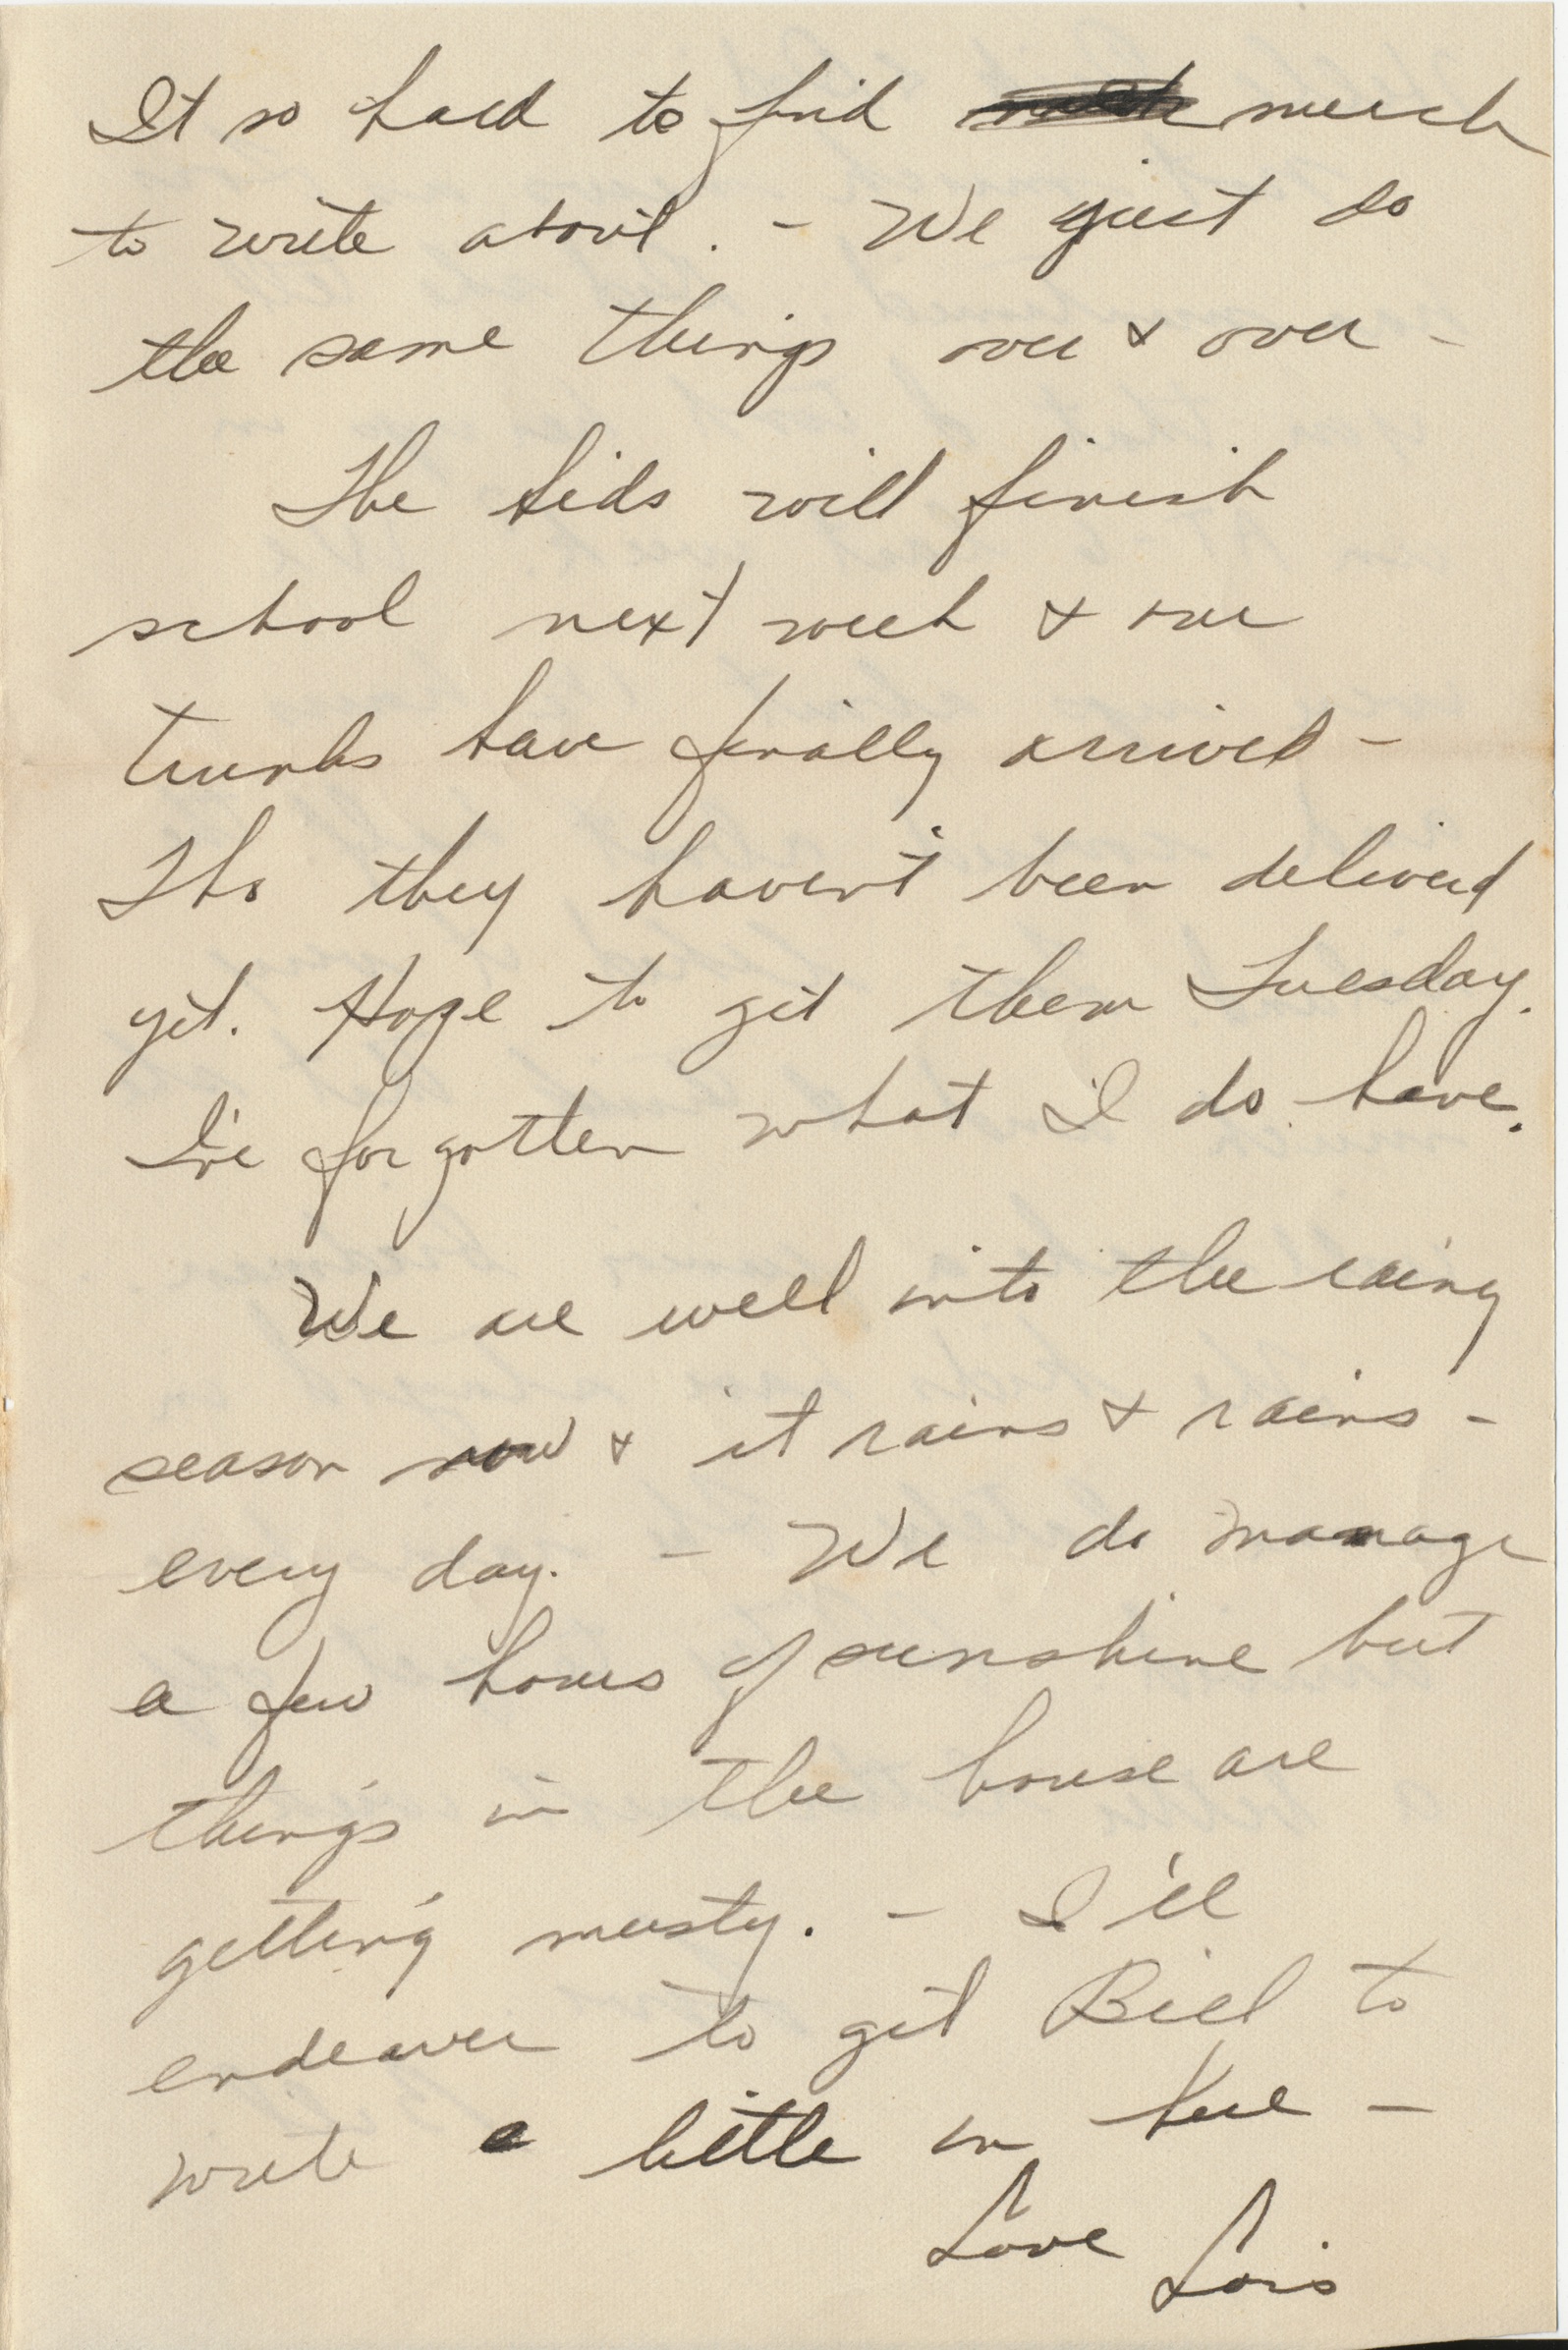 It so hard to find much
to write about. - We just do
the same things over & over -
The kids will finish
school next week & our
trunks have finally arrived -
Tho they haven't been delivered
yet. Hope to get them Tuesday.
I've forgotten what I do have.
We are well into the rainy
season now & it rains & rains -
every day. - We do manage
a few hours of sunshine but
things in the house are
getting musty. - I'll
endeaver to get Bill to
write a little in here -
Love Lois